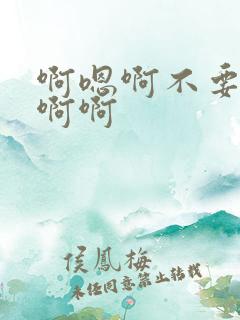 啊嗯啊不要
啊啊
侯凤梅
未经同意禁止转载